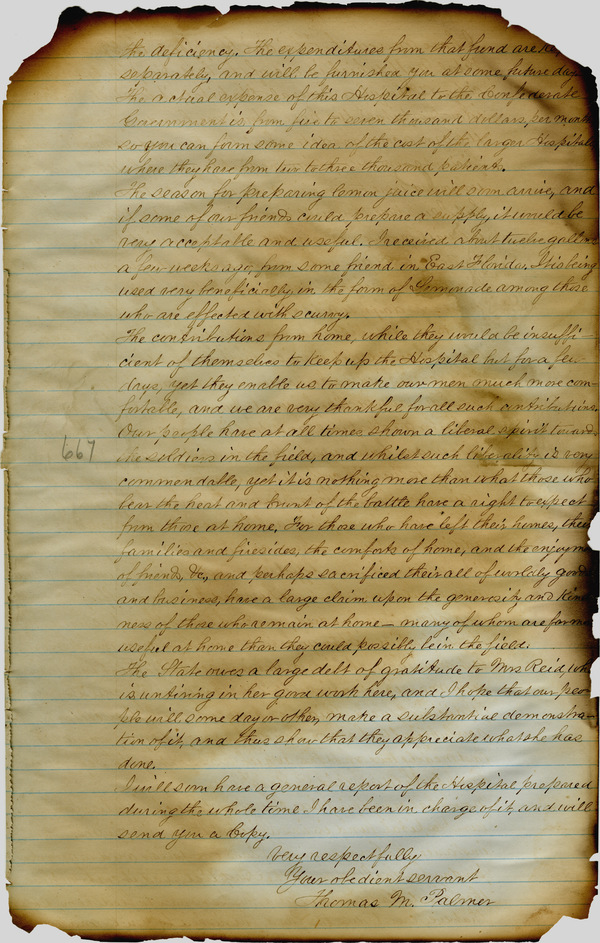 the deficiency. The expenditures from that fund are
separately, and will be furnished you at some future day
The actual expense of this Hospital to the Confederate
Government is from five to seven thousand dollars per month
so you can form some idea of the cost of the larger Hospitals
where they have from two to three thousand patients.
The season for preparing lemon juice will soon arrive, and
if some of our friends could prepare a supply, it would be
very acceptable and useful. I received about twelve gallons
a few weeks ago, from some friend in East Florida. It is being
used very beneficially in the form of Lemonade among those
who are effected with scurvy.
The contributions from home, while they would be insuffi-
cient of themselves to keep up the Hospital but for a few
days, yet they enable us to make our men much more com-
fortable, and we are very thankful for all such contributions.
Our people have at all times shown a liberal spirit towards
the soldiers in the field, and whilst such liberality is very
667
commendable, yet it is nothing more than what those who
bear the heat and brunt of the battle have a right to expect
from those at home. For those who have left their homes, their
families and firesides, the comforts of home, and the enjoym
of friends, &c, and perhaps sacrificed their all of worldly goods
and business, have a large claim upon the generosity and kind-
ness of those who remain at home — many of whom are far more
useful at home than they could possibly be in the field.
The State owes a large debt of gratitude to Mrs Reid, who
is untiring in her good work here, and I hope that our peo-
ple will some day or other, make a substantive demonstra-
tion of it, and thus show that they appreciate what she has
done.
I will soon have a general report of the Hospital prepared
during the whole time I have been in charge of it, and will
send you a Copy.
Very respectfully
Your obedient servant
Thomas M. Palmer